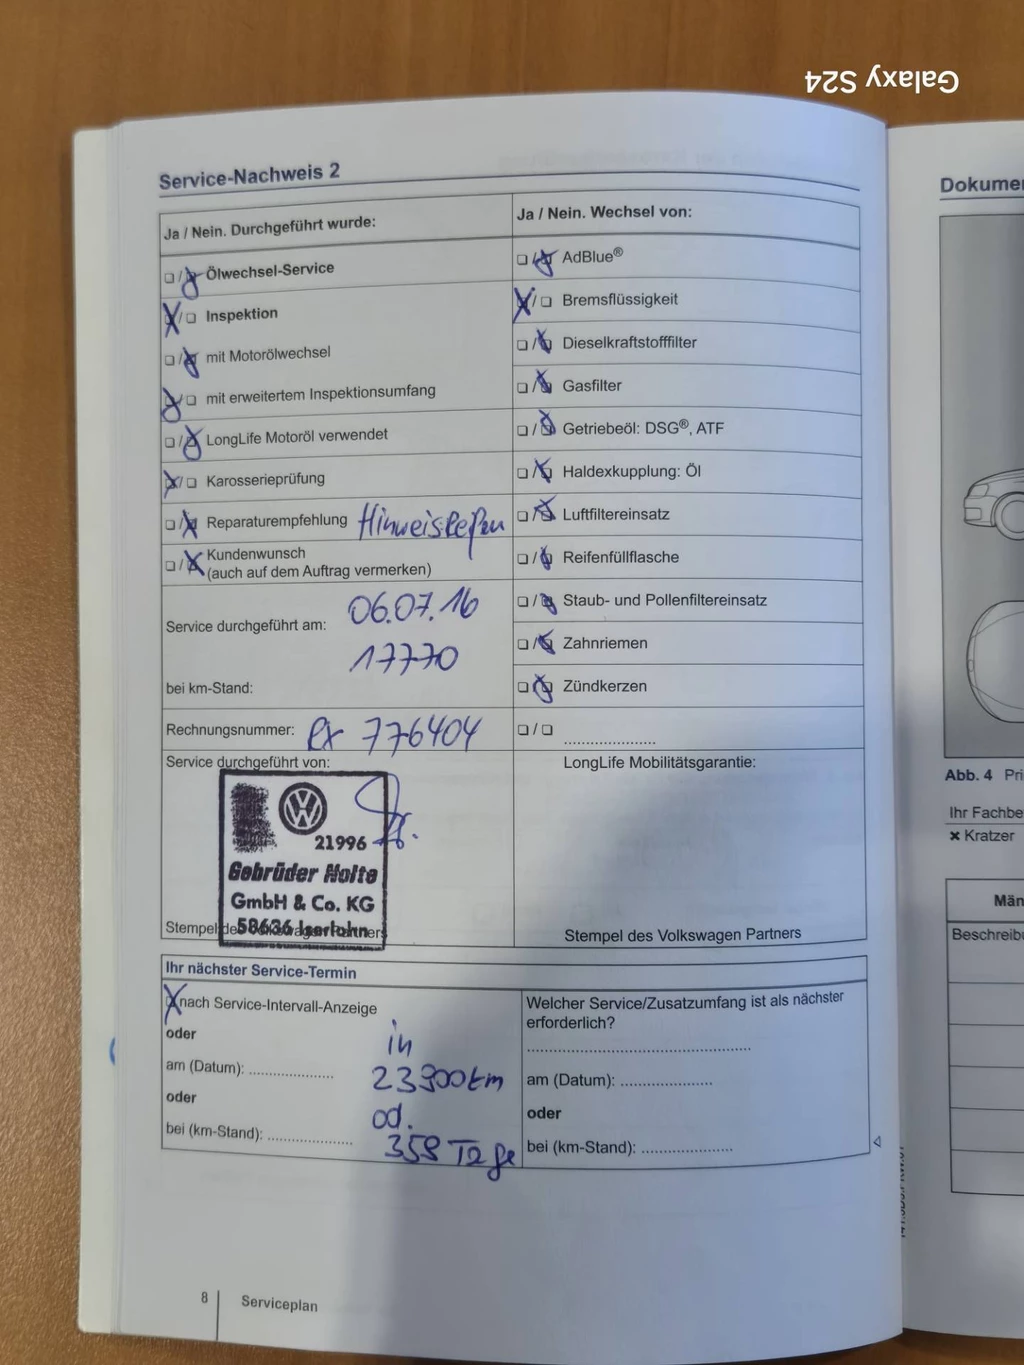 Galaxy S24
Service-Nachweis 2
Ja / Nein. Durchgeführt wurde:
Ölwechsel-Service
Inspektion
mit Motorölwechsel
mit erweitertem Inspektionsumfang
LongLife Motoröl verwendet
Karosserieprüfung
Reparaturempfehlung Hinweis
Kundenwunsch
(auch auf dem Auftrag vermerken)
Service durchgeführt am: 06.07.16
17770
bei km-Stand:
Rechnungsnummer: 776404
Service durchgeführt von:
21996
Gebrüder Nolte
GmbH & Co. KG
58636 Iserlohn
Stempel des Volkswagen Partners
Ja / Nein. Wechsel von:
AdBlue®
Bremsflüssigkeit
Dieselkraftstofffilter
Gasfilter
Getriebeöl: DSG®, ATF
Haldexkupplung: Öl
Luftfiltereinsatz
Reifenfüllflasche
Staub- und Pollenfiltereinsatz
Zahnriemen
Zündkerzen
LongLife Mobilitätsgarantie:
Stempel des Volkswagen Partners
Ihr nächster Service-Termin
nach Service-Intervall-Anzeige
oder
am (Datum):
oder
bei (km-Stand):
in
23300 km
od.
358 Tage
Welcher Service/Zusatzumfang ist als nächster
erforderlich?
am (Datum):
oder
bei (km-Stand):
8 Serviceplan
Abb. 4
Ihr
Kratzer